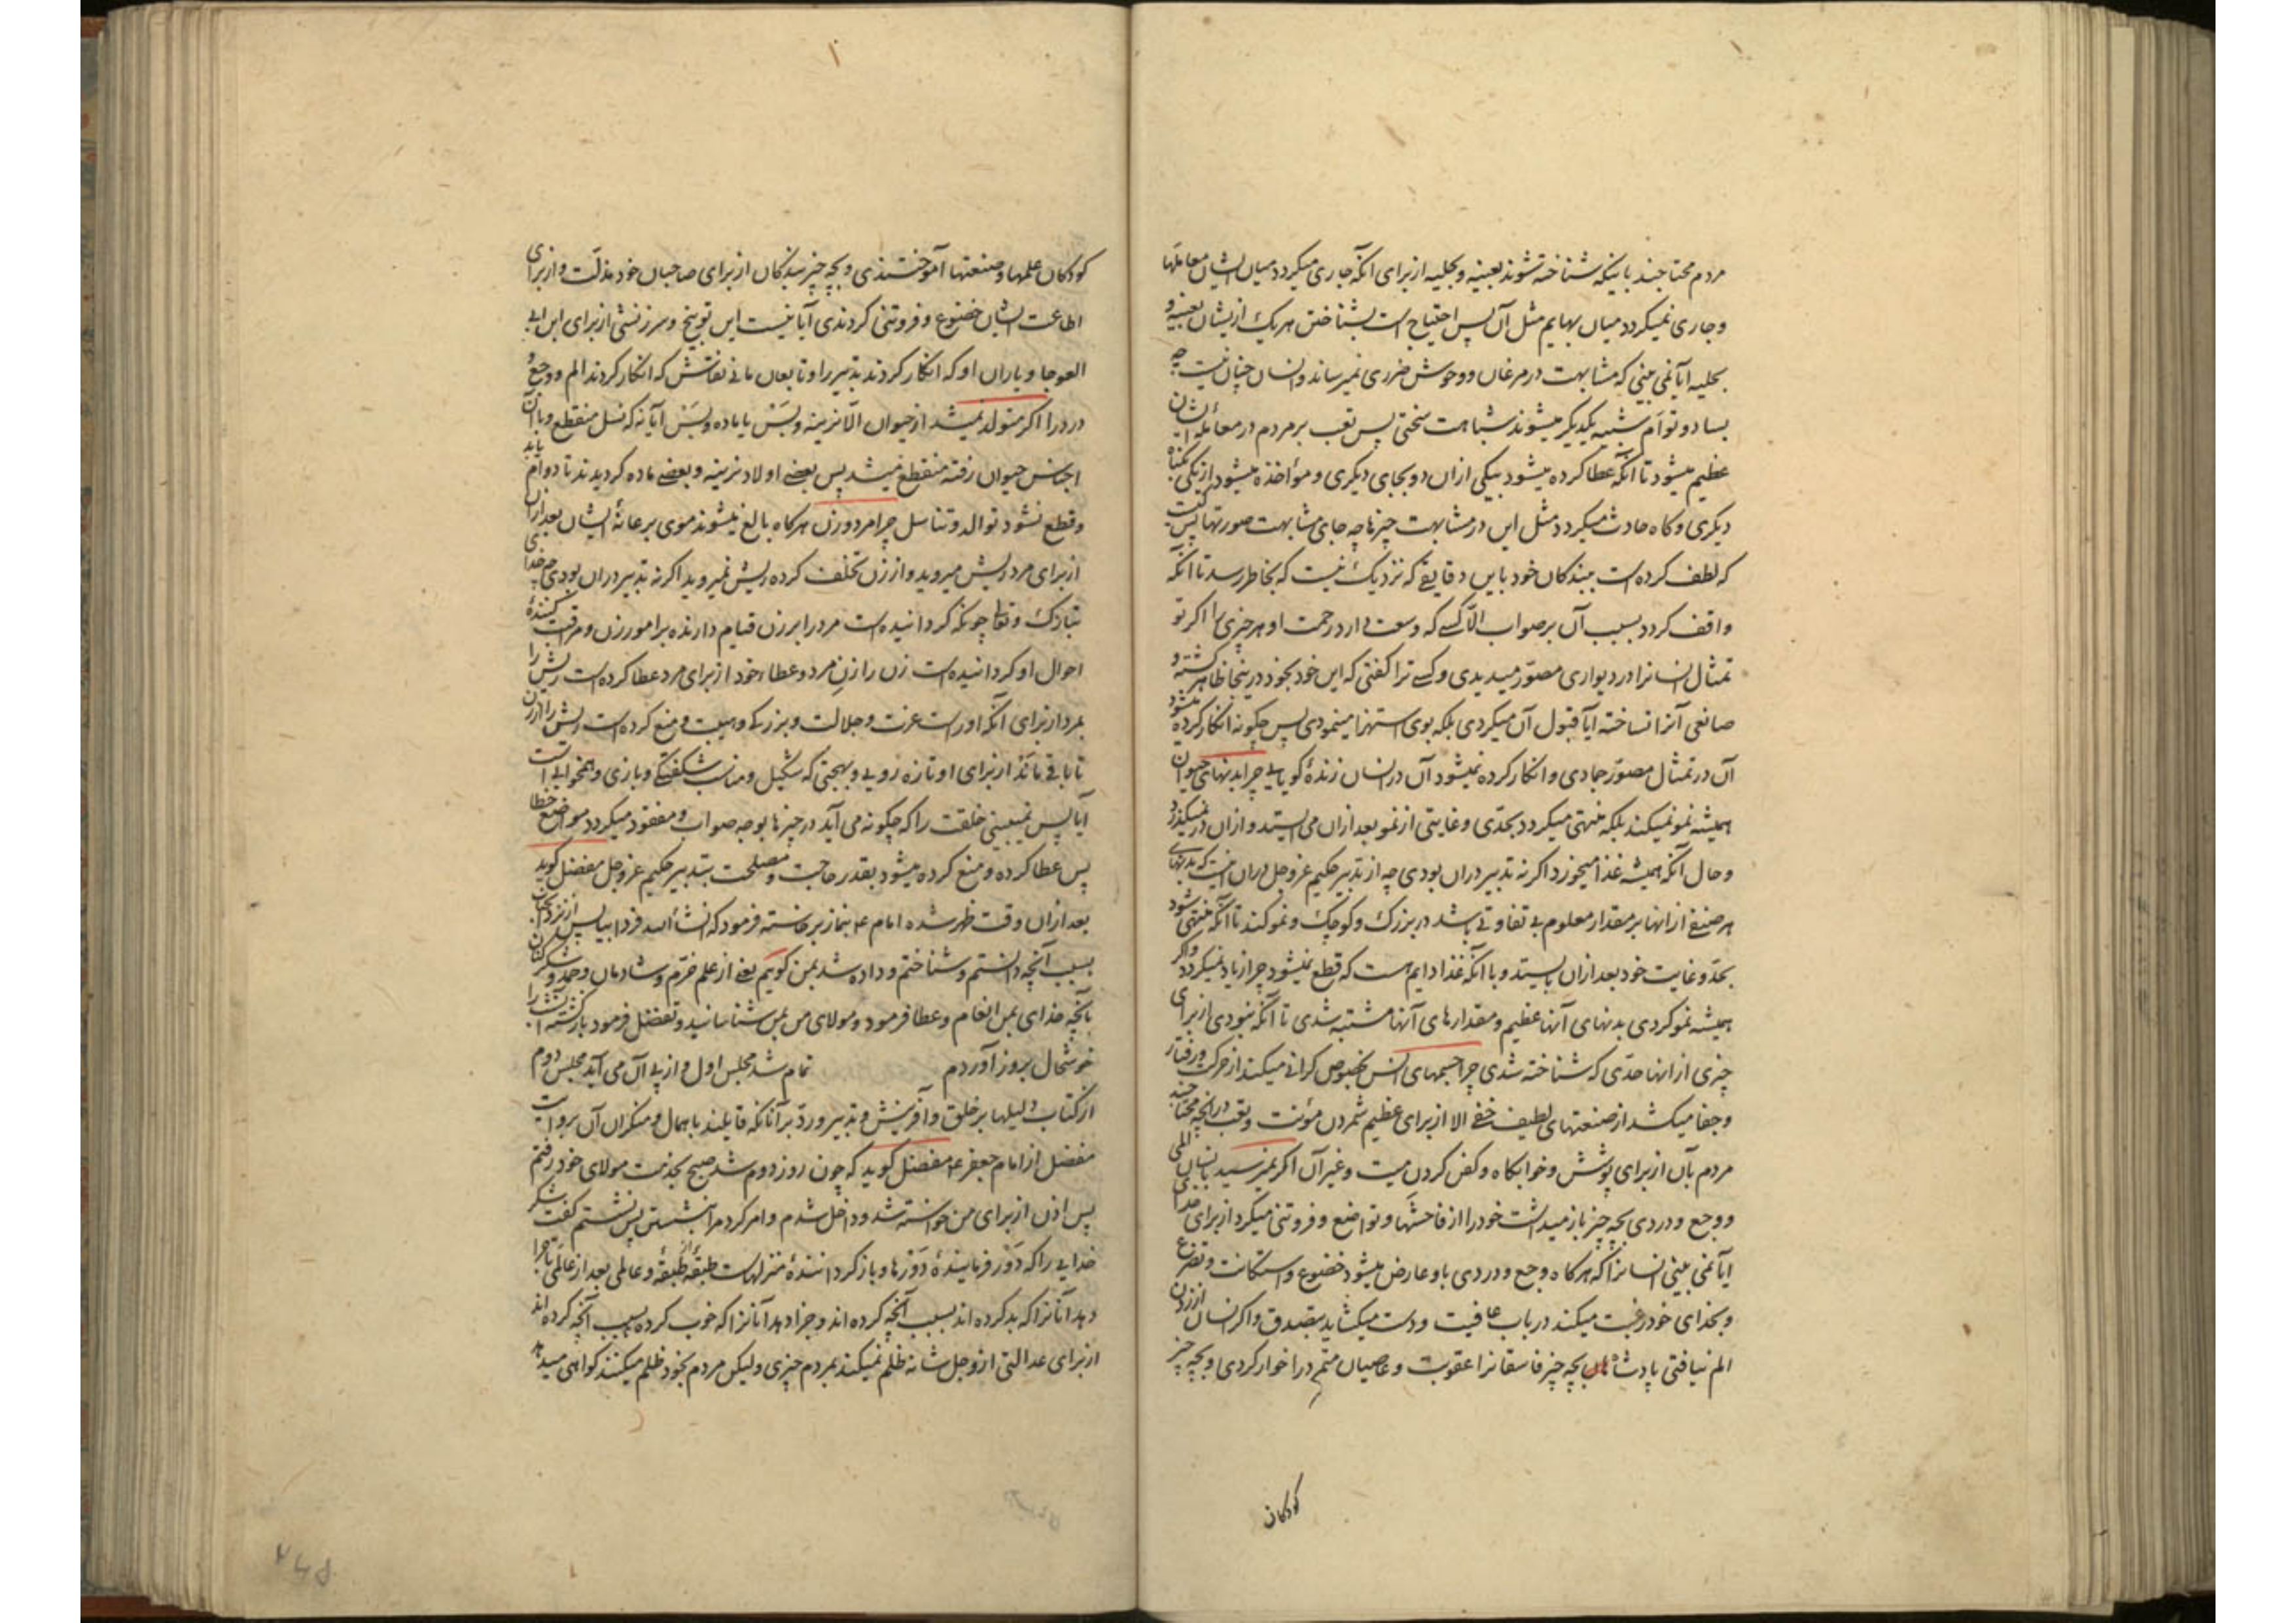 مردم محتاجند باینکه شناخته شوند بعینه و بحلیه از برای انکه جاری میکردد میان ایشان معاملها
و جاری نمیکردد میان بهایم مثل آن پس احتیاج است بشناختن هریک از یشان بعینه و
بحلیه ایا نمی بینی که مشابهت در مرغان و وحوش ضرری نمیرساند و انسان چنان نیست چه
بسا دو توأم شبیه بیکدیکر میشوند شباهت سختی پس تعب بر مردم در معامله ایشان
عظیم میشود تا انکه عطا کرده میشود بیکی ازان دو بجای دیکری و مؤاخذه میشود از یکی بکناه
دیکری و کاه حادث میکردد مثل این در مشابهت چیزها چه جای مشابهت صورتها پس کیست
که لطف کرده است ببندکان خود باین دقایقی که نزدیک نیست که بخاطر رسد تا آنکه
واقف کردد بسبب آن بر صواب الا کسی که وسعت دارد رحمت او هر چیزیرا اکر تو
تمثال انسانرا در دیواری مصوّر میدیدی و کسی ترا کفتی که این خود بخود درینجا ظاهر کشته و
صانعی آنرا نساخته ایا قبول آن میکردی بلکه بوی استهزا مینمودی پس چکونه انکار کرده میشود
آن در تمثال مصوّر جمادی و انکار کرده نمیشود آن در انسان زندهٔ کویایی چرا بدنهای حیوان
همیشه نمو نمیکند بلکه منتهی میکردد بحدّی و غایتی از نمو بعد ازان می ایستد و ازان در نمیکذرد
و حال آنکه همیشه غذا میخورد اکر نه تدبیر دران بودی چه از تدبیر حکیم عز و جل دران اینست که بدنهای
هر صنفی از انها بر مقدار معلوم بی تفاوتی باشد در بزرک و کوچک و نمو کند تا آنکه منتهی شود
بحد و غایت خود بعد ازان بایستد و با آنکه غذا دایم است که قطع نمیشود چرا زیاد نمیکردد و اکر
همیشه نمو کردی بدنهای آنها عظیم و مقدارهای آنها مشتبه شدی تا آنکه نبودی از برای
چیزی از انها حدّی که شناخته شدی چرا جسمهای انس بخصوص کرانی میکند از حرکت و رفتار
و جفا میکشد از صنعتهای لطیف خفی الا از برای عظیم شمردن مؤنت و تعب در انچه محتاجند
مردم بآن از برای پوشش و خوابکاه و کفن کردن میت و غیر آن اکر نمیرسید بانسان المی
و وجع و دردی بچه چیز باز میداشت خود را از فاحشها و تواضع و فروتنی میکرد از برای خدا
ایا نمی بینی انسانرا که هرکاه وجع و دردی باو عارض میشود خضوع و استکانت و تضرع
و بخدای خود رغبت میکند در باب عافیت و دست میکشاید بتصدق و اکر انسان از زدن
الم نیافتی پادشاهان بچه چیز فاسقانرا عقوبت و عاصیان متمرد را خوار کردی و بچه چیز
کودکان
کودکان علمها و صنعتها آموختندی و بچه چیز بندکان از برای صاحبان خود مذلّت و از برای
اطاعت ایشان خضوع و فروتنی کردندی آیا نیست این توبیخ و سرزنشی از برای ابن ابی
العوجا و یاران او که انکار کردند تدبیر را و تابعان مانی نقاش که انکار کردند الم و وجع و
درد را اکر متولد نمیشد از حیوان الّا نرینه و بَس یا ماده و بس آیا نه که نسل منقطع و با آن
اجناس حیوان رفته منقطع میشد پس بعضی اولاد نرینه و بعضی ماده کردیدند تا دوام یابد
و قطع نشود توالد و تناسل چرا مرد و زن هرکاه بالغ میشوند موی بر عانهٔ ایشان بعد ازان
از برای مرد ریش میروید و از زن تخلف کرده ریش نمیروید اکر نه تدبیر دران بودی چه خدای
تبارک و تعالی چونکه کردانیده است مرد را بر زن قیام دارنده بر امور زن و مراقبت کنندهٔ
احوال او کردانیده است زن را زنِ مرد و عطاء خود از برای مرد عطا کرده است ریش را
بمرد از برای آنکه اوراست عزت و جلالت و بزرکی و هیبت و منع کرده است ریش را از زن
تا باقی ماند از برای او تازه رویی و بهجتی که شکیل و مناسب شکفتکی و بازی و همخوابی است
آیا پس نمیبینی خلقت را که چکونه می آید در چیزها بوجه صواب و مفقود میکردد مواضع خطا
پس عطا کرده و منع کرده میشود بقدر حاجت و مصلحت بتدبیر حکیم عز و جل مفضل کوید
بعد ازان وقت ظهر شده امام ع بنماز برخاسته فرمود که انشأ الله فردا بیا پس از نزد انجناب
بسبب آنچه دانستم و شناختم و داده شد بمن کویم یعنی از علم خرّم و شادمان و حمد و شکر کنان
بآنچه خدای بمن انعام و عطا فرمود و مولای من بمن شناسانید و تفضل فرمود بازکشتم
خوشحال بروز آوردم تمام شد مجلس اول و از پی آن می آید مجلس دوم
از کتاب دلیلها بر خلق و آفرینش و تدبیر و ردّ بر آنانکه قایلند باهمال و منکران آن بروایت
مفضل از امام جعفر ع مفضل کوید که چون روز دوم شد صبح بخدمت مولای خود رفتم
پس اذن از برای من خواسته شد و داخل شدم و امر کرد مرا بنشستن پس نشستم کفت شکر
خدایی را که دَور فرمایندهٔ دَورها و باز کردانندهٔ منزلهاست طبقهٔ از طبقهٔ و عالمی بعد از عالمی تا جزا
دهد آنانرا که بد کرده اند بسبب آنچه کرده اند و جزا دهد آنانرا که خوب کرده بسبب آنچه کرده اند
از برای عدالتی از و جل شانه ظلم نمیکند بمردم چیزی ولیکن مردم بخود ظلم میکنند کواهی میدهد